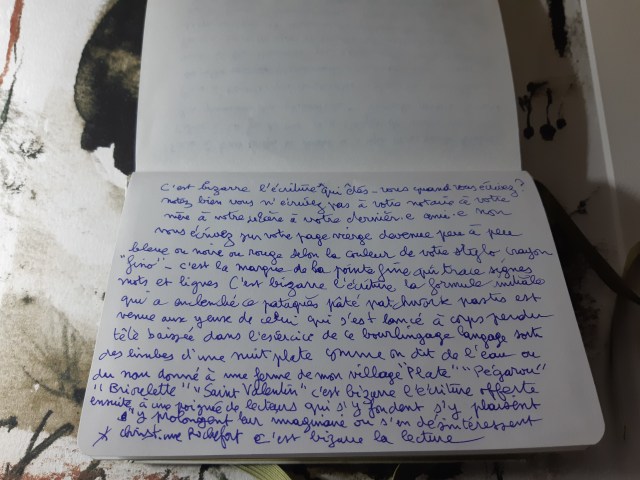 C'est bizarre l'écriture* qui êtes-vous quand vous écrivez?
notez bien vous n'écrivez pas à votre notaire à votre
mère à votre à votre dernièr.e ami.e non
vous écrivez sur votre page vierge devenue peu à peu
bleue ou noire ou rouge selon la couleur de votre stylo crayon
"fino" - c'est la marque de la pointe fine qui trace signes
mots et lignes C'est bizarre l'écriture la formule initiale
qui a enclenché ce pataquès pâté patchwork pastis est
venue aux yeux de celui qui s'est lancé à corps perdu
tête baissée dans l'exercice de ce bourlinguage langage sorti
des limbes d'une nuit plate comme on dit de l'eau ou
du nom donné à une ferme de mon village "Plate" "Pégarou"
"Briolette" "Saint Valentin" c'est bizarre l'écriture offerte
ensuite à une poignée de lecteurs qui s'y fondent s'y plaisent
y prolongent leur imaginaire ou s'en désintéressent
* Christiane Rochefort C'est bizarre la lecture